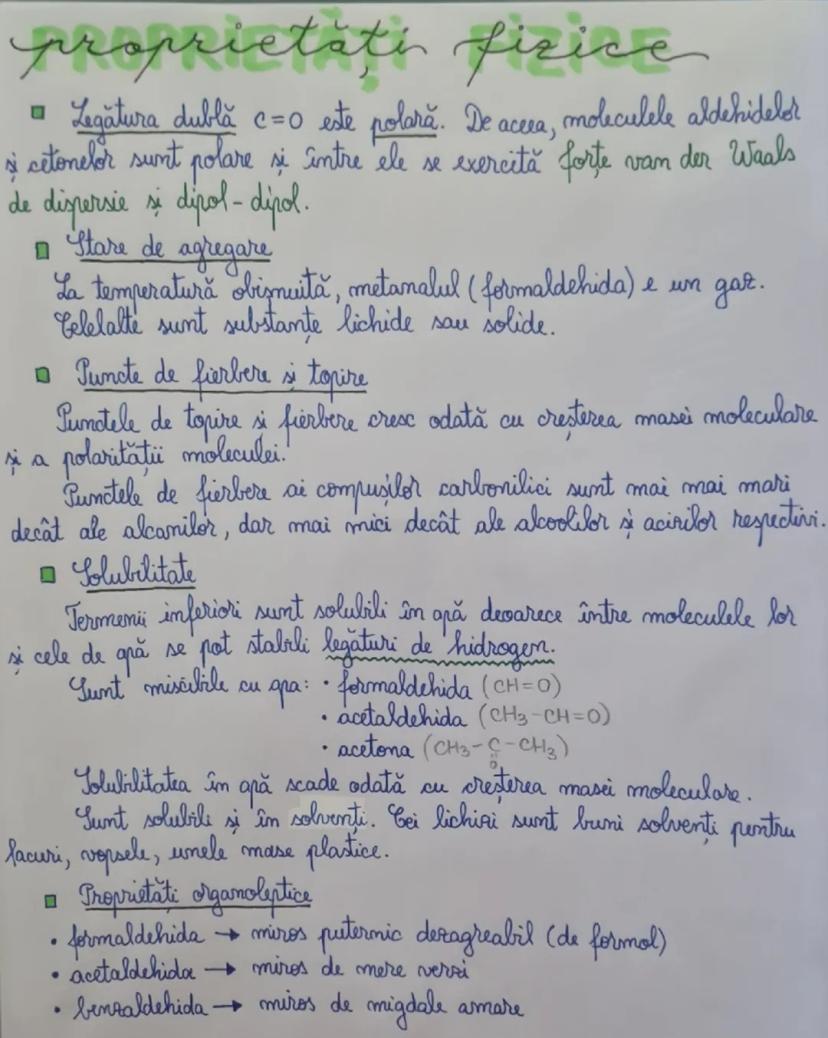 proprietăți fizice
Legătura dublă C=O este polară. De aceea, moleculele aldehidelor
și cetonelor sunt polare și între ele se exercită forțe van der Waals
de dispersie și dipol-dipol.
Stare de agregare
La temperatură obișnuită, metanalul (formaldehida) e un gaz.
Celelalte sunt substanțe lichide sau solide.
Puncte de fierbere și topire
Punctele de topire si fierbere cresc odată cu creșterea masei moleculare
și a polarității moleculei.
Punctele de fierbere ai compușilor carbonilici sunt mai mai mari
decât ale alcanilor, dar mai mici decât ale alcoolilor și acizilor respectivi.
Solubilitate
Termenii inferiori sunt solubili în apă deoarece între moleculele lor
și cele de apă se pot stabili legături de hidrogen.
Sunt miscibile cu apa: • formaldehida (CH=O)
• acetaldehida (CH3-CH=O)
• acetona (CH3-C-CH3)
O
Solubilitatea în apă scade odată cu creșterea masei moleculare.
Sunt solubili și în solvenți. Cei lichizi sunt buni solvenți pentru
lacuri, vopsele, unele mase plastice.
Proprietăți organoleptice
• formaldehida → miros puternic dezagreabil (de formol)
• acetaldehida → miros de mere verzi
• benzaldehida → miros de migdale amare